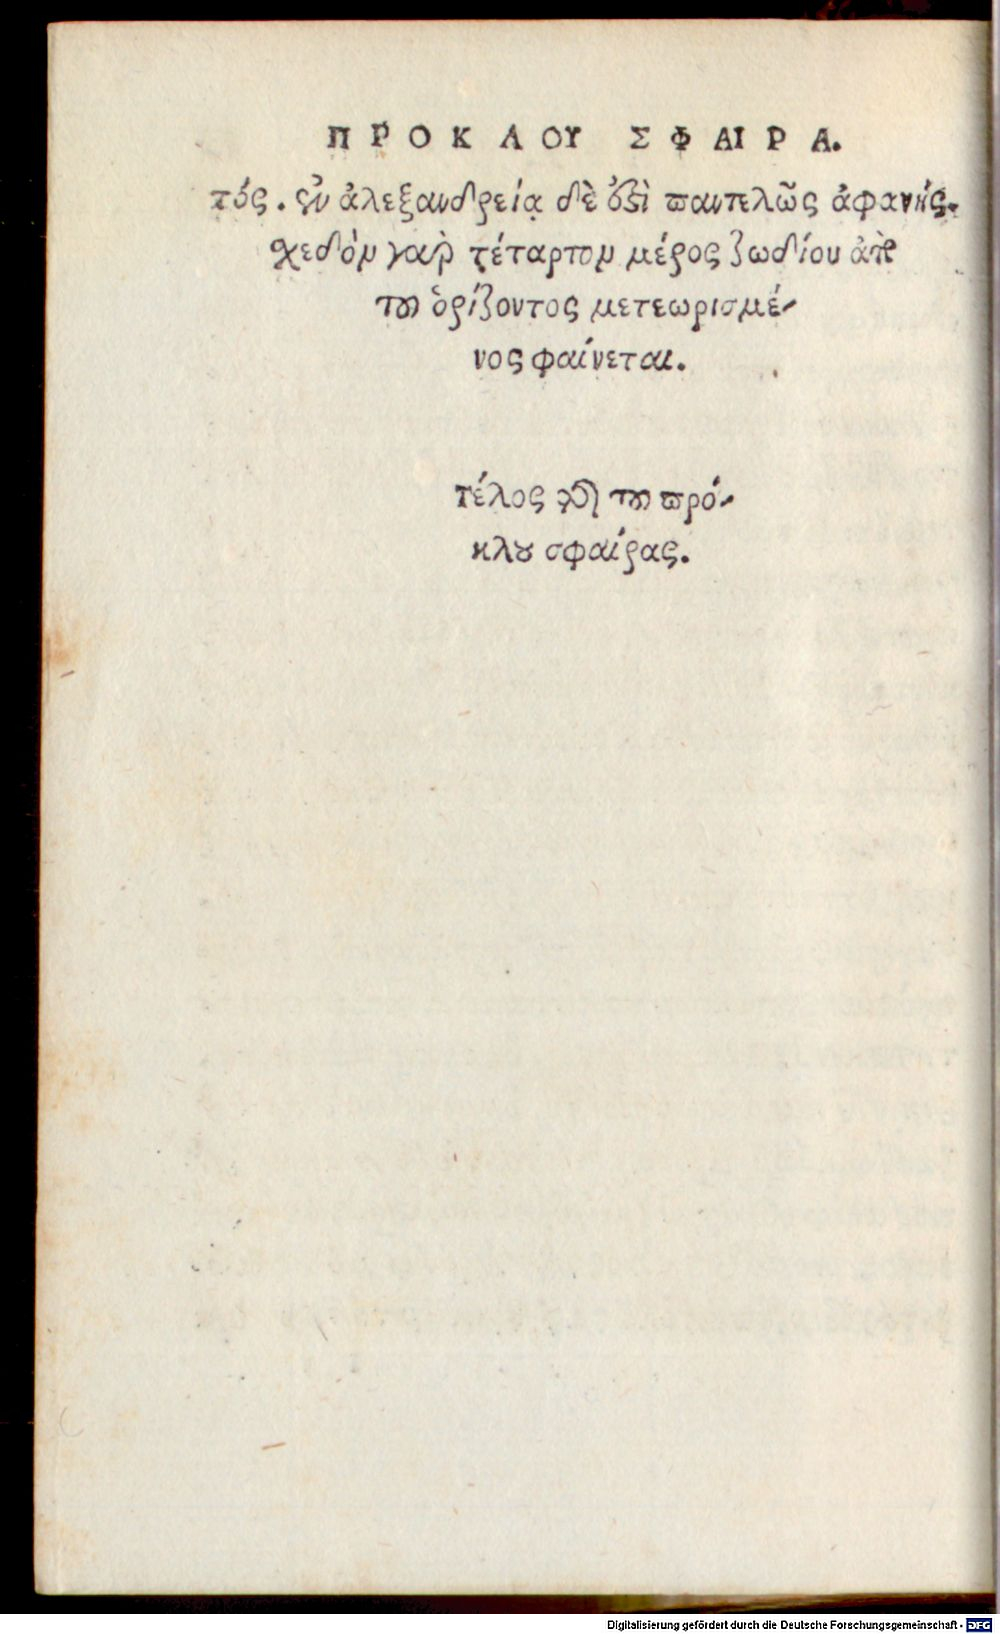 ΠΡΟΚΛΟΥ ΣΦΑΙΡΑ.
τός. ἐν ἀλεξανδρείᾳ δὲ ὅδε παντελῶς ἀφανής.
σχεδὸν γὰρ τέταρτον μέρος ζωδίου ἀπὸ
τοῦ ὁρίζοντος μετεωρισμέ-
νος φαίνεται.
Τέλος τῆς τοῦ πρό-
κλου σφαίρας.
Digitalisierung gefördert durch die Deutsche Forschungsgemeinschaft - DFG